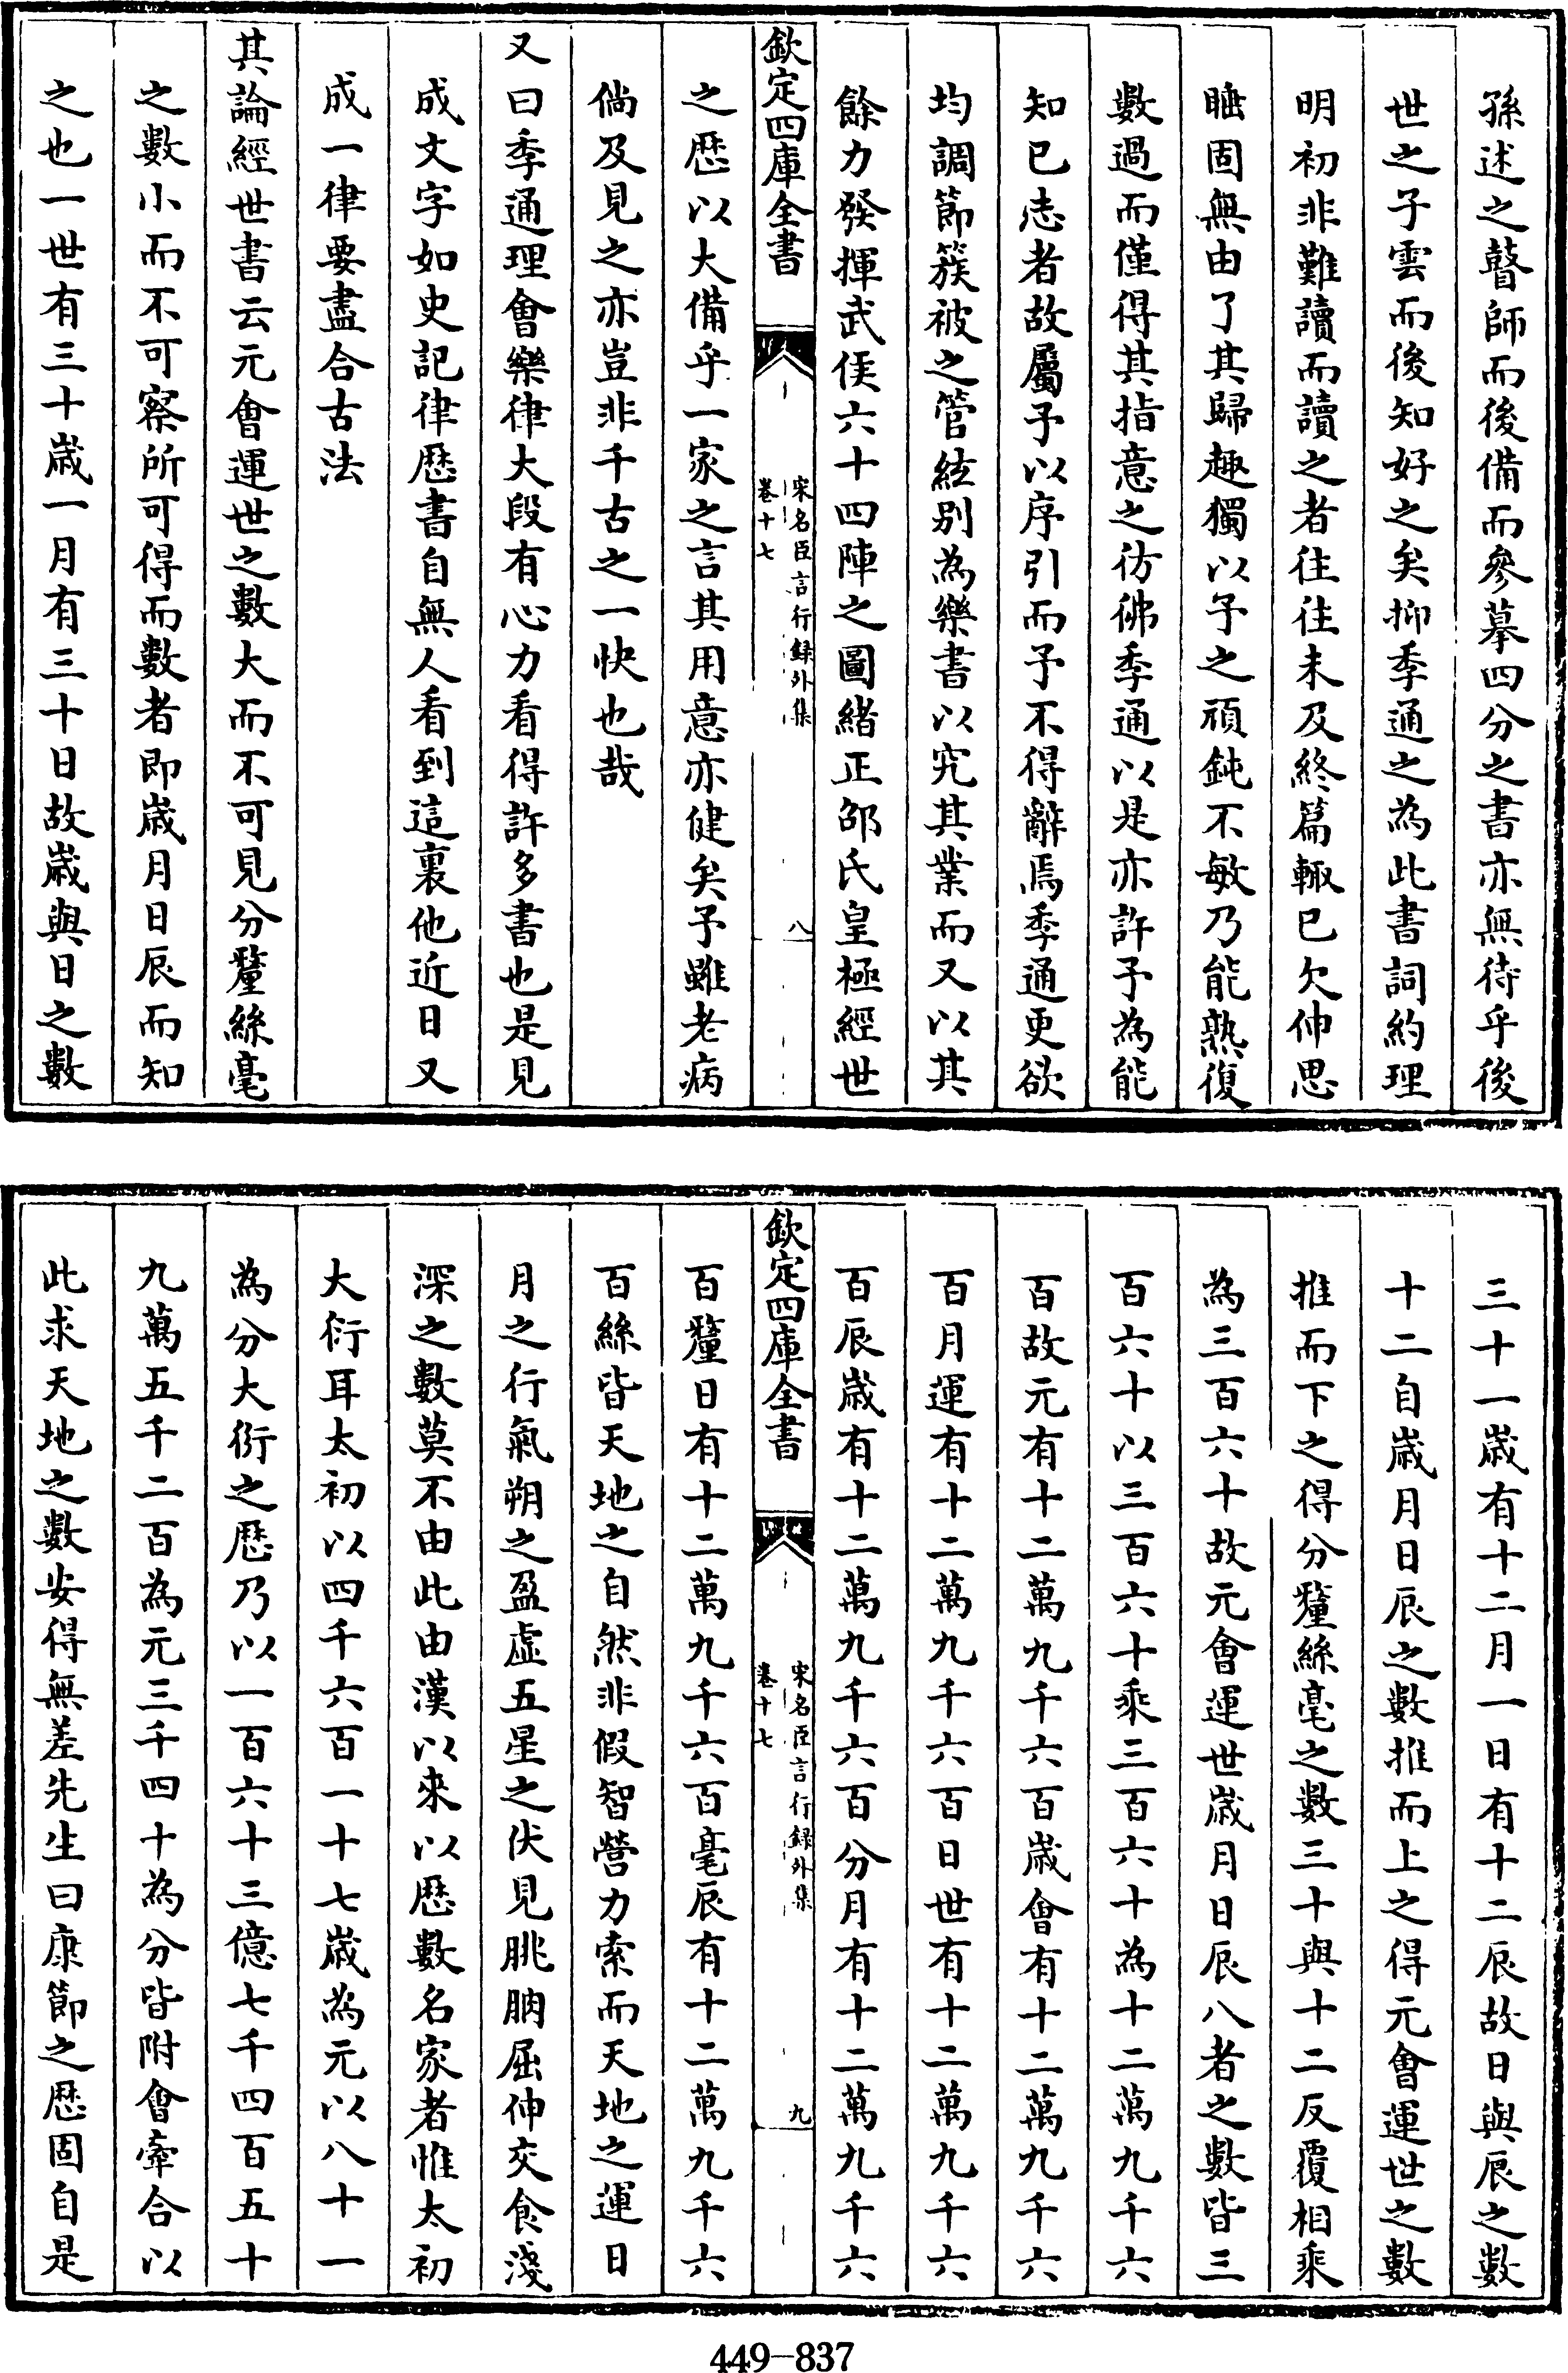 孫述之瞽師而後備而參摹四分之書亦無待乎後
世之子雲而後知好之矣抑季通之為此書詞約理
明初非難讀而讀之者往往未及終篇輒已欠伸思
睡固無由了其歸趣獨以予之頑鈍不敏乃能熟復
數過而僅得其指意之彷彿季通以是亦許予為能
知已志者故屬予以序引而予不得辭焉季通更欲
均調節簇被之管絃别為樂書以究其業而又以其
餘力發揮武侯六十四陣之圖緒正邵氏皇極經世
欽定四庫全書
宋名臣言行録外集
卷十七
八
之歴以大備乎一家之言其用意亦健矣予雖老病
倘及見之亦豈非千古之一快也哉
又曰季通理會樂律大段有心力看得許多書也是見
成文字如史記律歴書自無人看到這裏他近日又
成一律要盡合古法
其論經世書云元會運世之數大而不可見分釐絲毫
之數小而不可察所可得而數者即歲月日辰而知
之也一世有三十歲一月有三十日故歲與日之數
三十一歲有十二月一日有十二辰故日與辰之數
十二自歲月日辰之數推而上之得元會運世之數
推而下之得分釐絲毫之數三十與十二反覆相乘
為三百六十故元會運世歲月日辰八者之數皆三
百六十以三百六十乘三百六十為十二萬九千六
百故元有十二萬九千六百歲會有十二萬九千六
百月運有十二萬九千六百日世有十二萬九千六
百辰歲有十二萬九千六百分月有十二萬九千六
欽定四庫全書
宋名臣言行録外集
卷十七
九
百釐日有十二萬九千六百毫辰有十二萬九千六
百絲皆天地之自然非假智營力索而天地之運日
月之行氣朔之盈虛五星之伏見朓朒屈伸交食淺
深之數莫不由此由漢以來以歴數名家者惟太初
大衍耳太初以四千六百一十七歲為元以八十一
為分大衍之歴乃以一百六十三億七千四百五十
九萬五千二百為元三千四十為分皆附會牽合以
此求天地之數安得無差先生曰康節之歴固自是
449-837